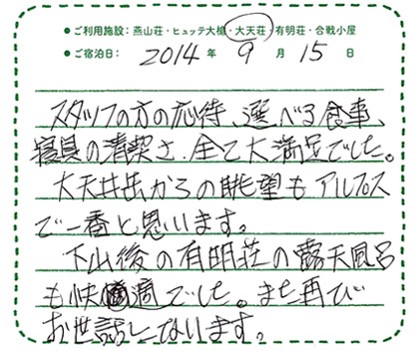 ●ご利用施設：燕山荘・ヒュッテ大槍・大天荘・有明荘・合戦小屋
●ご宿泊日： 2014 年 9 月 15 日
スタッフの方の応待、選べる食事、
寝具の清潔さ、全て大満足でした。
大天井岳からの眺望もアルプス
で一番と思います。
下山後の有明荘の露天風呂
も快適でした。また再び
お世話になります。